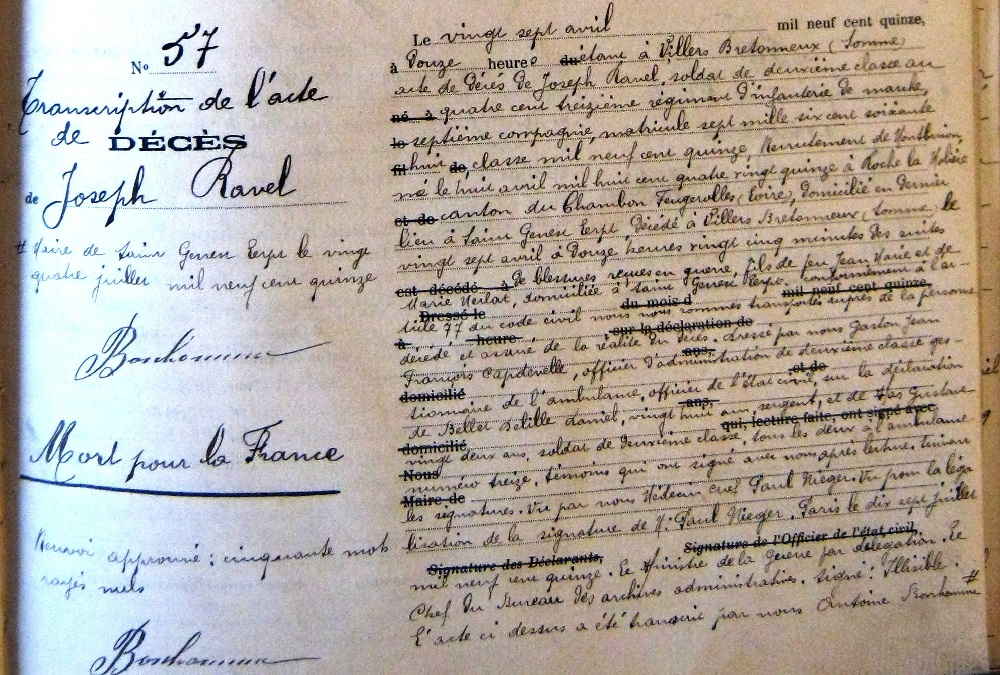 N° 57
Transcription de l'acte
de DÉCÈS
de Joseph Ravel
# Maire de Saint Genest Lerpt le vingt
quatre juillet mil neuf cent quinze
Bonhomme
Mort pour la France
Renvoi approuvé : cinquante mots
rayés nuls
Bonhomme
Le vingt sept avril mil neuf cent quinze,
à Douze heures du étant à Villers Bretonneux (Somme)
acte de décès de Joseph Ravel, soldat de deuxième classe au
né à quatre cent treizième régiment d'infanterie de marche,
le septième compagnie, matricule sept mille six cent soixante
fil huit de, classe mil neuf cent quinze, Recrutement de Montbrison,
né le huit avril mil huit cent quatre vingt quinze à Roche la Molière
et de canton du Chambon Feugerolles (Loire), domicilié en dernier
lieu à Saint Genest Lerpt Décédé à Villers Bretonneux (Somme) le
vingt sept avril à Douze heures vingt cinq minutes des suites
est décédé, à De blessures reçues en guerre, fils de feu Jean Marie et de
Marie Merlat, domiciliée à Saint Genest Lerpt. Conformément à l'ar
Dressé le du mois d mil neuf cent quinze,
ticle 77 du code civil nous nous sommes transporté auprès de la personne
à heure sur la déclaration de
décédé et assuré de la réalité du décès. Dressé par nous Gaston Jean
ans,
François Capderelle, officier d'administration de deuxième classe ges-
domicilié et de
tionnaire de l'ambulance, officier de l'état civil, sur la déclaration
de Bellet Delille Daniel, vingt huit ans, sergent, et de Gustave
ans,
domicilié qui, lecture faite, ont signé avec
vingt deux ans, soldat de deuxième classe, tous les deux à l'ambulance
Nous
numéro treize, témoins qui ont signé avec nous après lecture. Suivent
Maire de
les signatures. Vu par nous Médecin chef Paul Nieger. Vu pour la léga
lisation de la signature de M. Paul Nieger. Paris le dix sept juillet
Signature des Déclarants, Signature de l'Officier de l'état civil,
mil neuf cent quinze. Le Ministre de la Guerre par délégation. Le
Chef du Bureau des archives administratives. Signé : Illisible.
L'acte ci dessus a été transcrit par nous Antoine Bonhomme #